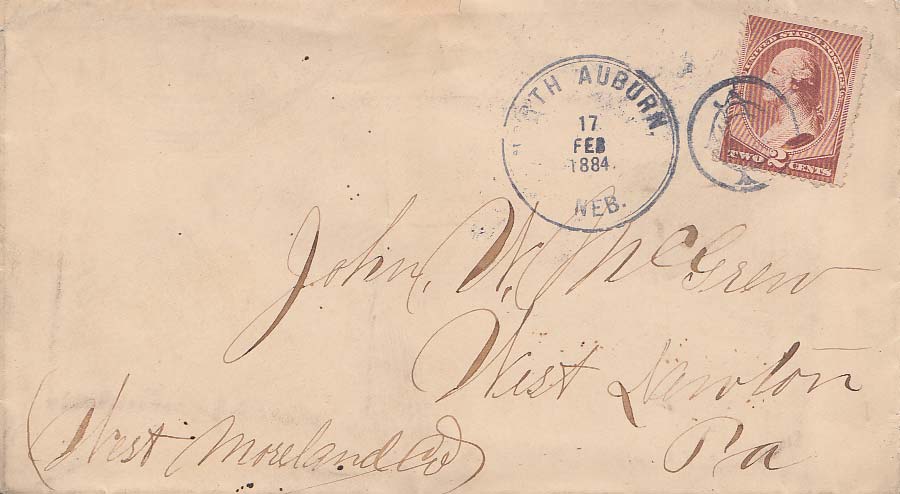 UNITED STATES POSTAGE
TWO 2 CENTS
RTH AUBURN,
17
FEB
1884.
NEB.
John W. McGrew
West Newton
(West Moreland Co)
Pa